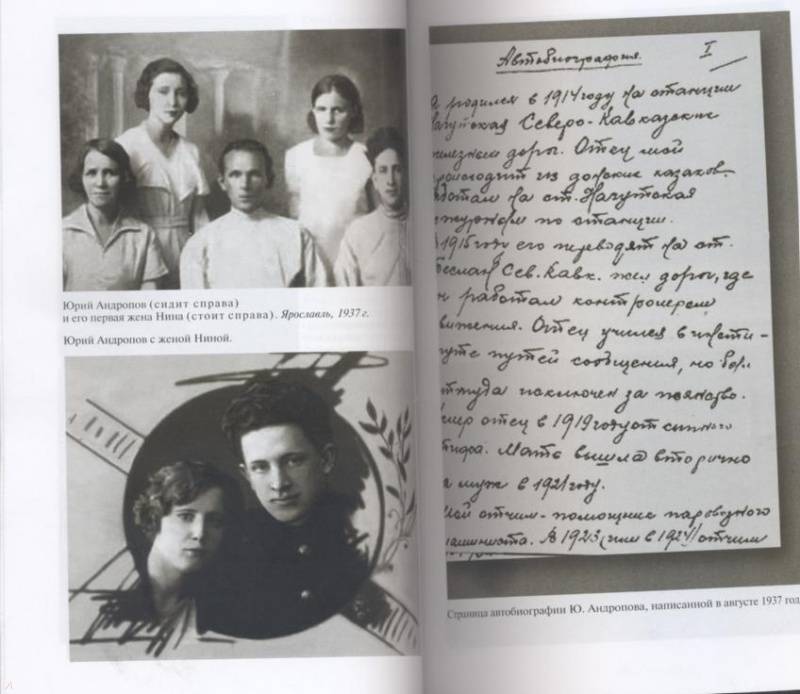 Юрий Андропов (сидит справа)
и его первая жена Нина (стоит справа). Ярославль, 1937 г.
Юрий Андропов с женой Ниной.
Автобиография. I
родился в 1914 году на станции
Северо-Кавказских
дорог. Отец мой
из донских казаков.
на ст. Нагутская
по станции.
1915 году его переводят на ст.
Беслан Сев. Кавк. жел дорог, где
работал контролером
движения. Отец учился в инсти-
туте путей сообщения, но был
оттуда исключен за пьянство.
отец в 1919 году от сыпного
тифа. Мать вышла вторично
муж в 1921 году.
Мой отчим - помощник паровозного
машиниста. В 1923 (или в 1924) отчим
Страница автобиографии Ю. Андропова, написанной в августе 1937 год